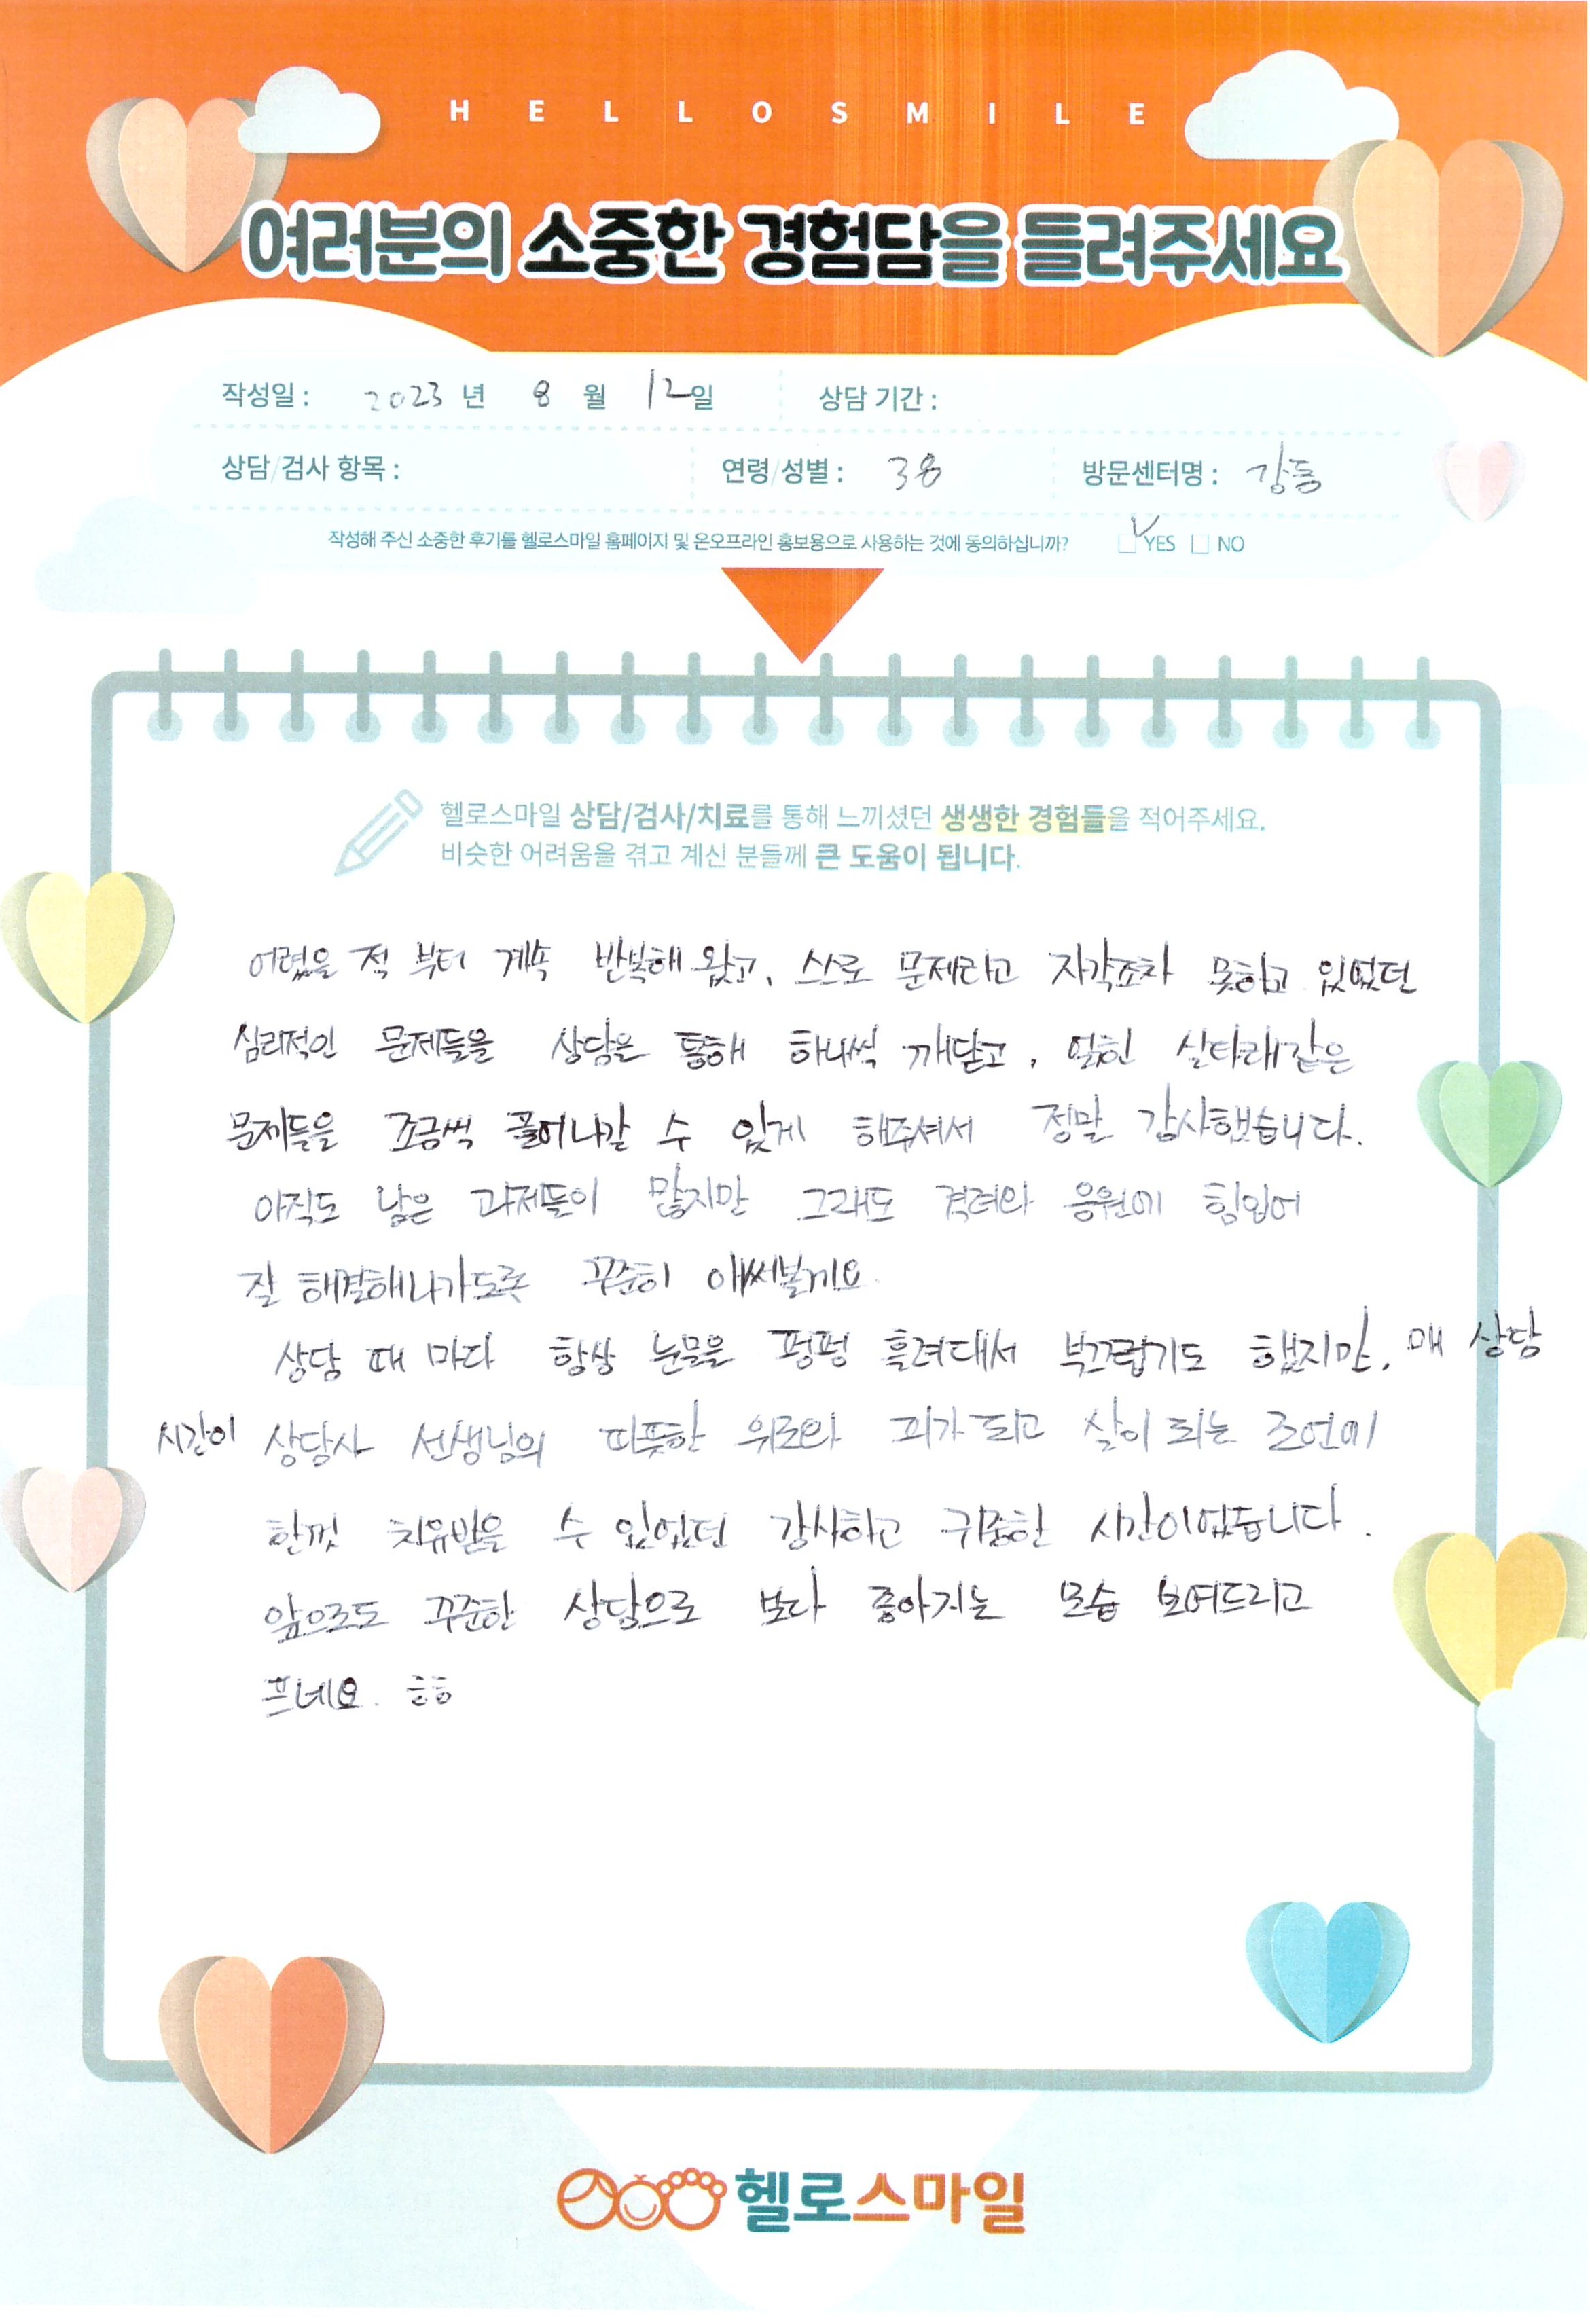 HELLOSMILE
여러분의 소중한 경험담을 들려주세요
작성일 : 2023 년 8 월 12일 상담 기간 :
상담/검사 항목 : 연령/성별 : 38 방문센터명 : 강동
작성해 주신 소중한 후기를 헬로스마일 홈페이지 및 온오프라인 홍보용으로 사용하는 것에 동의하십니까? YES NO
헬로스마일 상담/검사/치료를 통해 느끼셨던 생생한 경험들을 적어주세요.
비슷한 어려움을 겪고 계신 분들께 큰 도움이 됩니다.
어렸을 적 부터 계속 반복해 왔고, 스스로 문제라고 자각조차 못하고 있었던
심리적인 문제들을 상담을 통해 하나씩 깨닫고, 얽힌 실타래같은
문제들을 조금씩 풀어나갈 수 있게 해주셔서 정말 감사했습니다.
아직도 남은 과제들이 많지만 그래도 격려와 응원에 힘입어
잘 해결해나가도록 꾸준히 애써볼게요.
상담 때 마다 항상 눈물을 펑펑 흘려대서 부끄럽기도 했지만, 매 상담
시간이 상담사 선생님의 따뜻한 위로와 피가 되고 살이 되는 조언에
한껏 치유받을 수 있었던 감사하고 귀중한 시간이었습니다.
앞으로도 꾸준한 상담으로 보다 좋아지는 모습 보여드리고
프네요. ㅎㅎ
헬로스마일